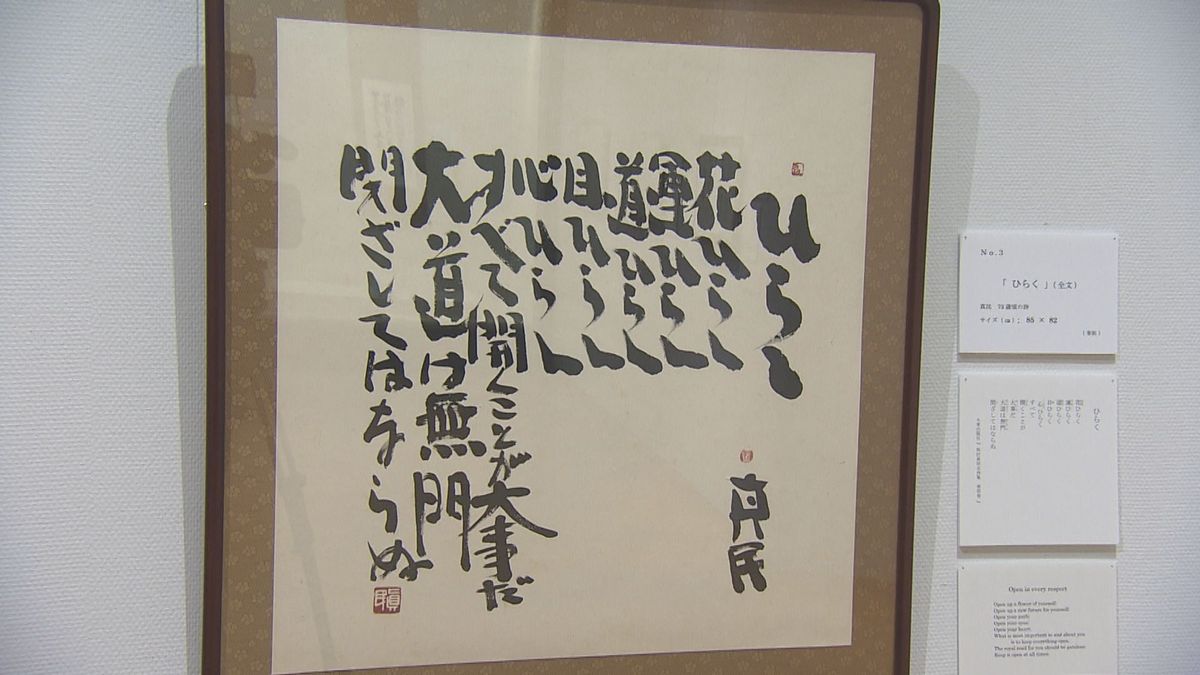 ひらく
真民
花ひらく
運ひらく
道ひらく
目ひらく
心ひらく
すべて開くことが大事だ
大道は無門
閉ざしてはならぬ
No.3
「 ひらく 」(全文)
真民 73歳頃の詩
サイズ(㎝); 85 × 82
ひらく
花ひらく
運ひらく
道ひらく
目ひらく
心ひらく
すべて
開くことが
大事だ
大道は無門
閉ざしてはならぬ
Open in every respect
Open up a flower of yourself!
Open up a new future for yourself!
Open your path!
Open your eyes!
Open your heart.
What is most important in and about you
is to keep everything open.
The royal road for you should be gateless:
Keep it open at all times.